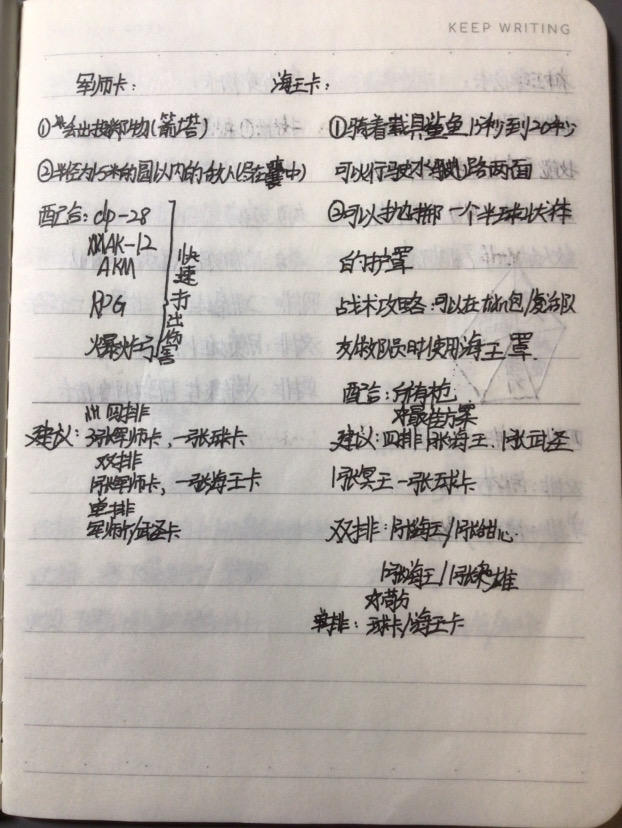 KEEP WRITING
军师卡：
①
(箭塔)
②半径为15米的圆以内的敌人
配合：dp-28
MAK-12
AKM
RPG
爆炸弓
快速打出伤害
四排
建议：3张军师卡，一张球卡
双排
1张军师卡，一张海王卡
单排
军师卡/武圣卡
海王卡：
①骑着载具鲨鱼15秒到20秒
可以行驶水路两面
②可以一个半球大体
的护罩
战术攻略：可以在
救队员时使用海王罩.
配合：所有枪
最佳方案
建议：四排1张海王、1张武圣
1张冥王一张球卡
双排：1张海王/1张甜心
1张海王/1张英雄
单排：球卡/海王卡